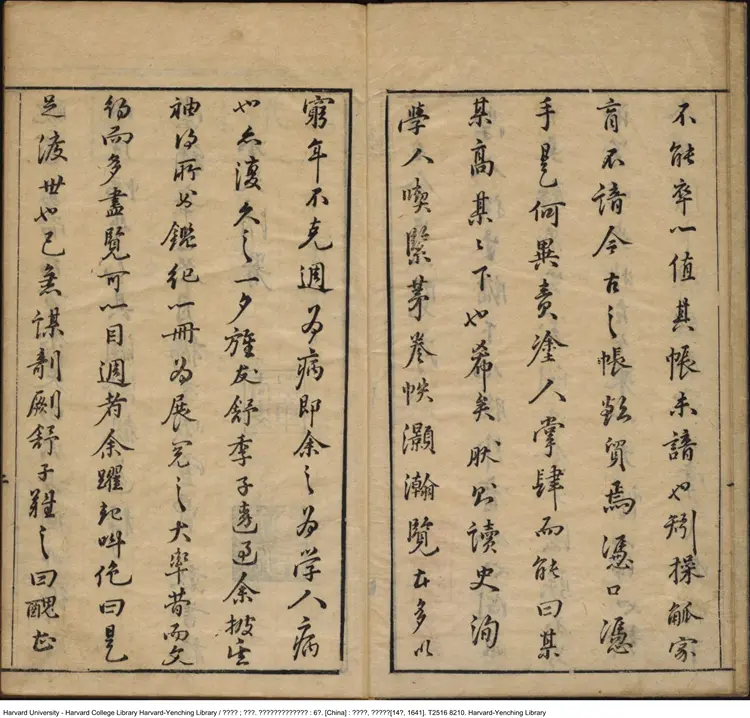 不能率以值其帳未諳也矧操觚家
育不諳今古之帳欲貿焉憑口憑
手是何異責塗人掌肆而能曰某
某高某〻下也希矣然則讀史洵
學人喫緊茅卷帙灝瀚覽者多以
窮年不克週為病即余之為学人病
也亦復久之一夕旌友舒季子過余披
袖得所鑑紀一冊為展覓之大率昔而文
約而多盡覽可以目週者余躍起叫絕曰是
足渡世也已亟謀剞劂舒子難之曰醜
Harvard University - Harvard College Library Harvard-Yenching Library / ???? ; ???. ????????????? : 6?. [China] : ????, ?????[14?, 1641]. T2516 8210. Harvard-Yenching Library